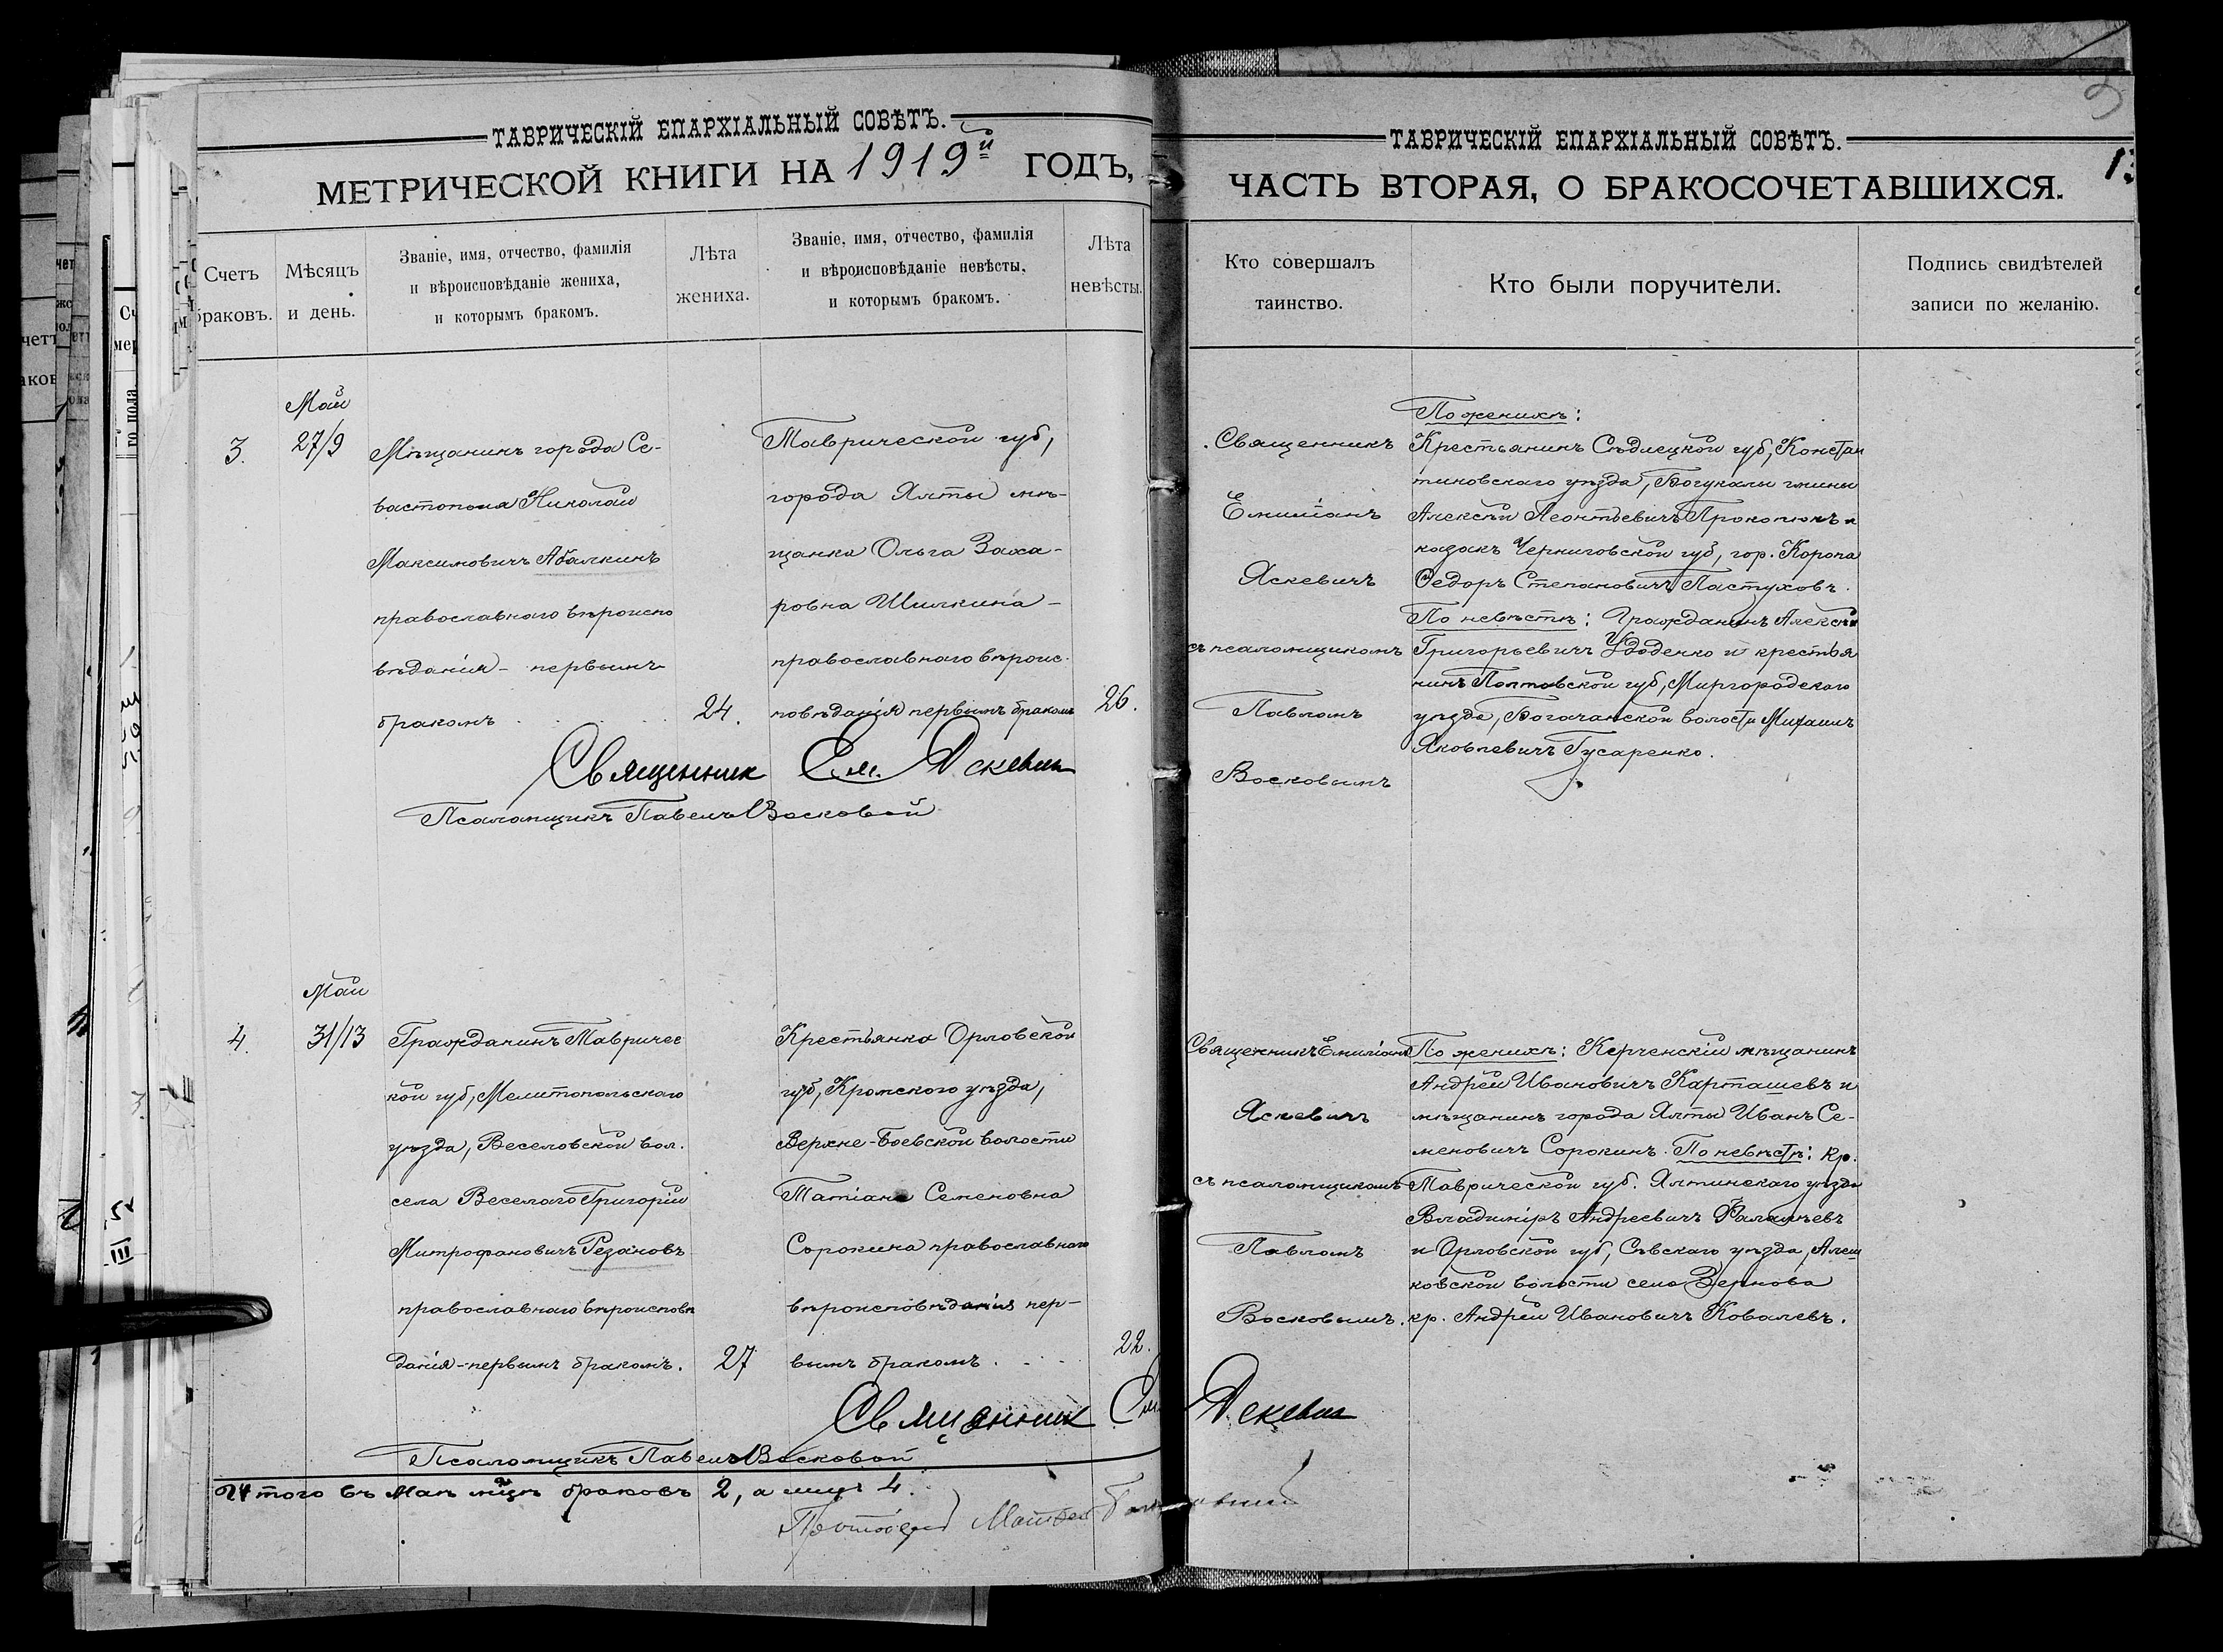 ТАВРИЧЕСКІЙ ЕПАРХІАЛЬНЫЙ СОВѢТЪ.
МЕТРИЧЕСКОЙ КНИГИ НА 1919й ГОДЪ,
Счетъ браковъ.
Мѣсяцъ и день.
Званіе, имя, отчество, фамилія
и вѣроисповѣданіе жениха,
и которымъ бракомъ.
Лѣта
жениха.
Званіе, имя, отчество, фамилія
и вѣроисповѣданіе невѣсты,
и которымъ бракомъ.
Лѣта
невѣсты.
3.
Май
27/9
Мѣщанинъ города Се-
вастополя Николай
Максимовичъ Абалкинъ
православнаго вѣроиспо
вѣданія - первымъ
бракомъ
24.
Таврической губ,
города Ялты мѣ-
щанка Ольга Заха-
ровна Шилкина -
православнаго вѣроис-
повѣданія первымъ бракомъ
26.
Священник Ем. Яскевич
Псаломщикъ Павелъ Восковой
4.
Май
31/13
Гражданинъ Тавричес
кой губ, Мелитопольскаго
уѣзда, Веселовской вол.
села Веселаго Григорій
Митрофановичъ Резановъ
православнаго вѣроисповѣ
данія - первымъ бракомъ.
27
Крестьянка Орловской
губ, Кромского уѣзда,
Верхне-Боевской волости
Татіана Семеновна
Сорокина православнаго
вѣроисповѣданія пер-
вымъ бракомъ.
22.
Священник Ем. Яскевич
Псаломщикъ Павелъ Восковой
Итого въ маѣ м-цѣ браковъ 2, а лицъ 4.
ТАВРИЧЕСКІЙ ЕПАРХІАЛЬНЫЙ СОВѢТЪ.
ЧАСТЬ ВТОРАЯ, О БРАКОСОЧЕТАВШИХСЯ.
Кто совершалъ
таинство.
Кто были поручители.
Подпись свидѣтелей
записи по желанію.
Священникъ
Емиліанъ
Яскевичъ
съ псаломщикомъ
Павломъ
Восковымъ
По женихѣ:
Крестьянинъ Сѣдлецкой губ, Констан
тиновскаго уѣзда, Богукалы гмины
Алексѣй Леонтьевичъ Прокопюкъ и
казакъ Черниговской губ, гор. Коропа
Ѳедоръ Степановичъ Пастуховъ.
По невѣстѣ: Гражданинъ Алексѣй
Григорьевичъ Удоденко и крестья
нинъ Полтавской губ, Миргородскаго
уѣзда, Богачанской волости Михаилъ
Яковлевичъ Гусаренко.
Священникъ Емиліанъ
Яскевичъ
съ псаломщикомъ
Павломъ
Восковымъ.
По женихѣ: Керченскій мѣщанинъ
Андрей Ивановичъ Карташевъ и
мѣщанинъ города Ялты Иванъ Се-
меновичъ Сорокинъ. По невѣстѣ: кр.
Таврической губ. Ялтинскаго уѣзда
Владиміръ Андреевичъ Фалалѣевъ
и Орловской губ, Сѣвскаго уѣзда, Алеш
ковской волости села Зернова
кр. Андрей Ивановичъ Ковалевъ.